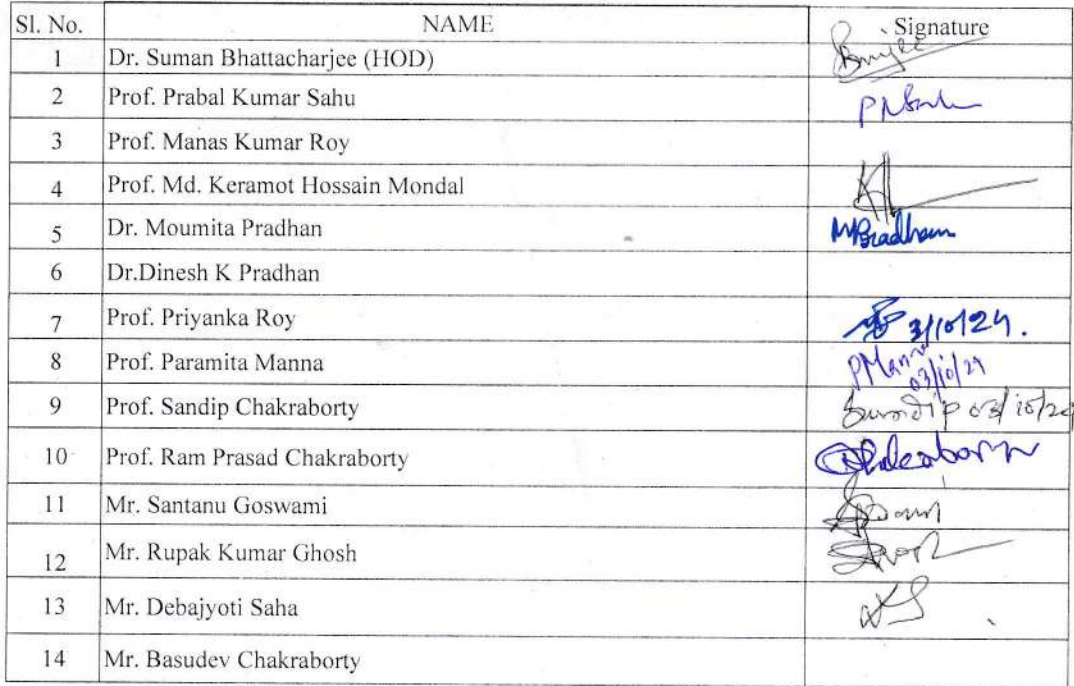 Sl. No. NAME Signature
1 Dr. Suman Bhattacharjee (HOD)
2 Prof. Prabal Kumar Sahu PKSahu
3 Prof. Manas Kumar Roy
4 Prof. Md. Keramot Hossain Mondal
5 Dr. Moumita Pradhan MPradhan
6 Dr.Dinesh K Pradhan
7 Prof. Priyanka Roy 3/10/24.
8 Prof. Paramita Manna PManna 03/10/24
9 Prof. Sandip Chakraborty Sandip 03/10/24
10 Prof. Ram Prasad Chakraborty
11 Mr. Santanu Goswami
12 Mr. Rupak Kumar Ghosh
13 Mr. Debajyoti Saha
14 Mr. Basudev Chakraborty